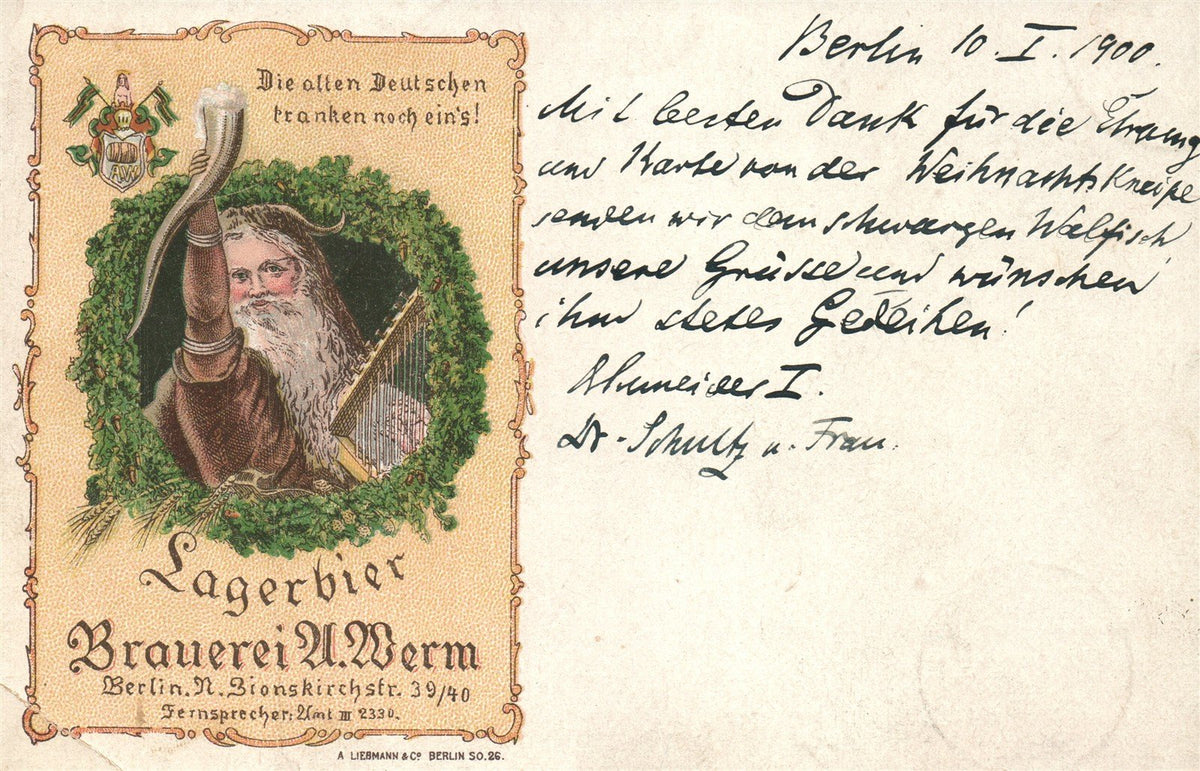 Die alten Deutschen
tranken noch ein's!
A.W.
Lagerbier
Brauerei A. Werm
Berlin. N. Zionskirchstr. 39/40
Fernsprecher: Amt III 2330.
A LIEBMANN & Co BERLIN SO.26.
Berlin 10. I. 1900.
Mit besten Dank für die Ehrung
und Karte von der Weihnachtskneipe
senden wir dem schwarzen Walfisch
unsere Grüsse und wünschen
ihm stetes Gedeihen!
I.
Dr. Schultz u. Frau.